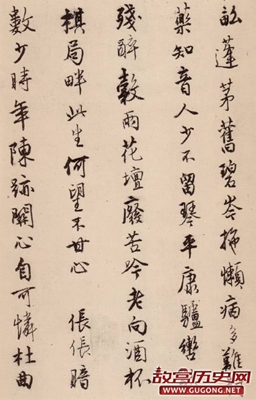 畝蓬茅舊碧岑疎懶病多難
藥知音人少不留琴平康驢轡
殘醉穀雨花壇廢苦吟老向酒杯
棋局畔此生何望不甘心 倀倀暗
數少時年陳跡關心自可憐杜曲
故宫历史网
gugong.net